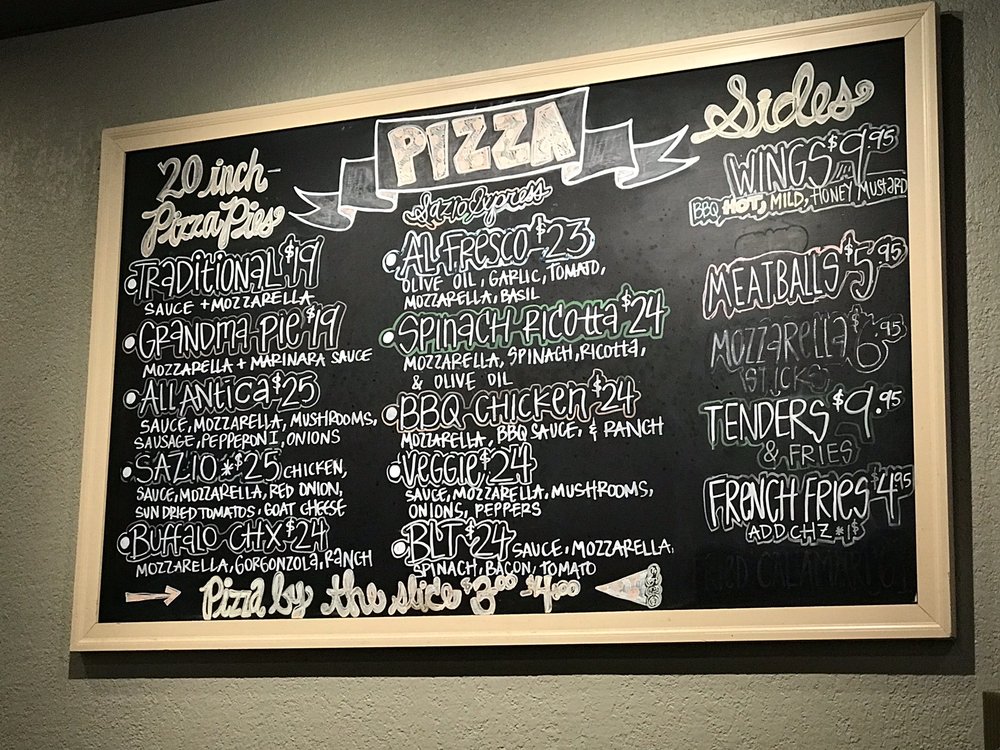 PIZZA
Sazio Express
20 inch
Pizza Pies
TRADITIONAL $19
SAUCE + MOZZARELLA
GRANDMA PIE $19
MOZZARELLA + MARINARA SAUCE
ALL'ANTICA $25
SAUCE, MOZZARELLA, MUSHROOMS,
SAUSAGE, PEPPERONI, ONIONS
SAZIO * $25 CHICKEN,
SAUCE, MOZZARELLA, RED ONION,
SUN DRIED TOMATOS, GOAT CHEESE
BUFFALO CHX $24
MOZZARELLA, GORGONZOLA, RANCH
AL FRESCO $23
OLIVE OIL, GARLIC, TOMATO,
MOZZARELLA, BASIL
SPINACH RICOTTA $24
MOZZARELLA, SPINACH, RICOTTA,
& OLIVE OIL
BBQ CHICKEN $24
MOZZARELLA, BBQ SAUCE, & RANCH
VEGGIE $24
SAUCE, MOZZARELLA, MUSHROOMS,
ONIONS, PEPPERS
BLT $24 SAUCE, MOZZARELLA,
SPINACH, BACON, TOMATO
Pizza by the slice $3.00 $4.00
Sides
WINGS $9.95
BBQ, HOT, MILD, HONEY MUSTARD
MEATBALLS $5.95
MOZZARELLA $6.95
STICKS
TENDERS $9.95
& FRIES
FRENCH FRIES $4.95
ADD CHZ *1$
CALAMARI